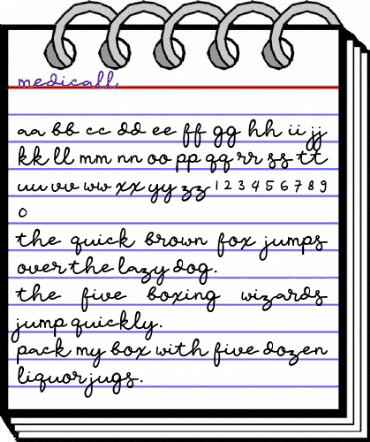 medicall
aa bb cc dd ee ff gg hh ii jj
kk ll mm nn oo pp qq rr ss tt
uu vv ww xx yy zz 1 2 3 4 5 6 7 8 9
0
the quick brown fox jumps
over the lazy dog.
the five boxing wizards
jump quickly.
pack my box with five dozen
liquor jugs.